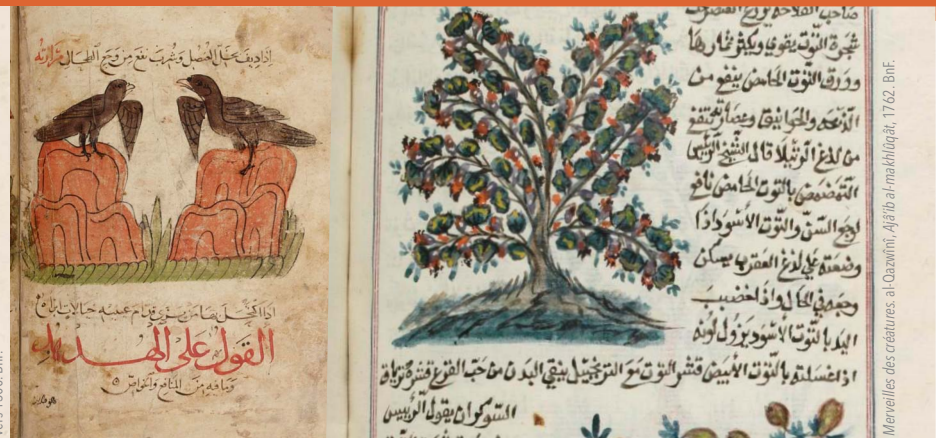 إذا ديف بخل العنصل وشرب نفع من وجع الطحال
القول على الهدهد
وما فيه من المنافع والخواص
صاحب الفلاحة
شجرة التوت يقوي ويكثر ثمارها
وورق التوت الحامض ينفع من
الذبحه والخوانيق وعصارته تنفع
من لدغ الرتيلا قال الشيخ الرئيس
التمضمض بالتوت الحامض نافع
لوجع السن والتوت الأسود اذا
وضعته علي لدغ العقرب يسكن
وجعه في الحال واذا خضبت
اليد بالتوت الاسود يزول لونه
اذا غسلته بالتوت الأبيض قشر التوت مع الترنجبيل ينقي البدن من حب القرع
يقول الرئيس
Merveilles des créatures. al-Qazwînî, Ajâ'ib al-makhlûqât, 1762. BnF.